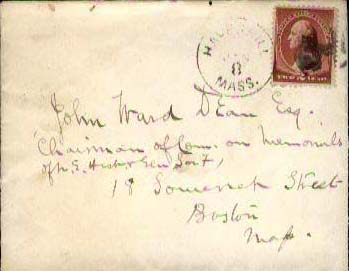 HAVERHILL
8
MASS.
John Ward Dean Esq.
Chairman of Com. on Memorials
of N.E. Hist & Gen Soc'y,
18 Somerset Street
Boston
Mass.